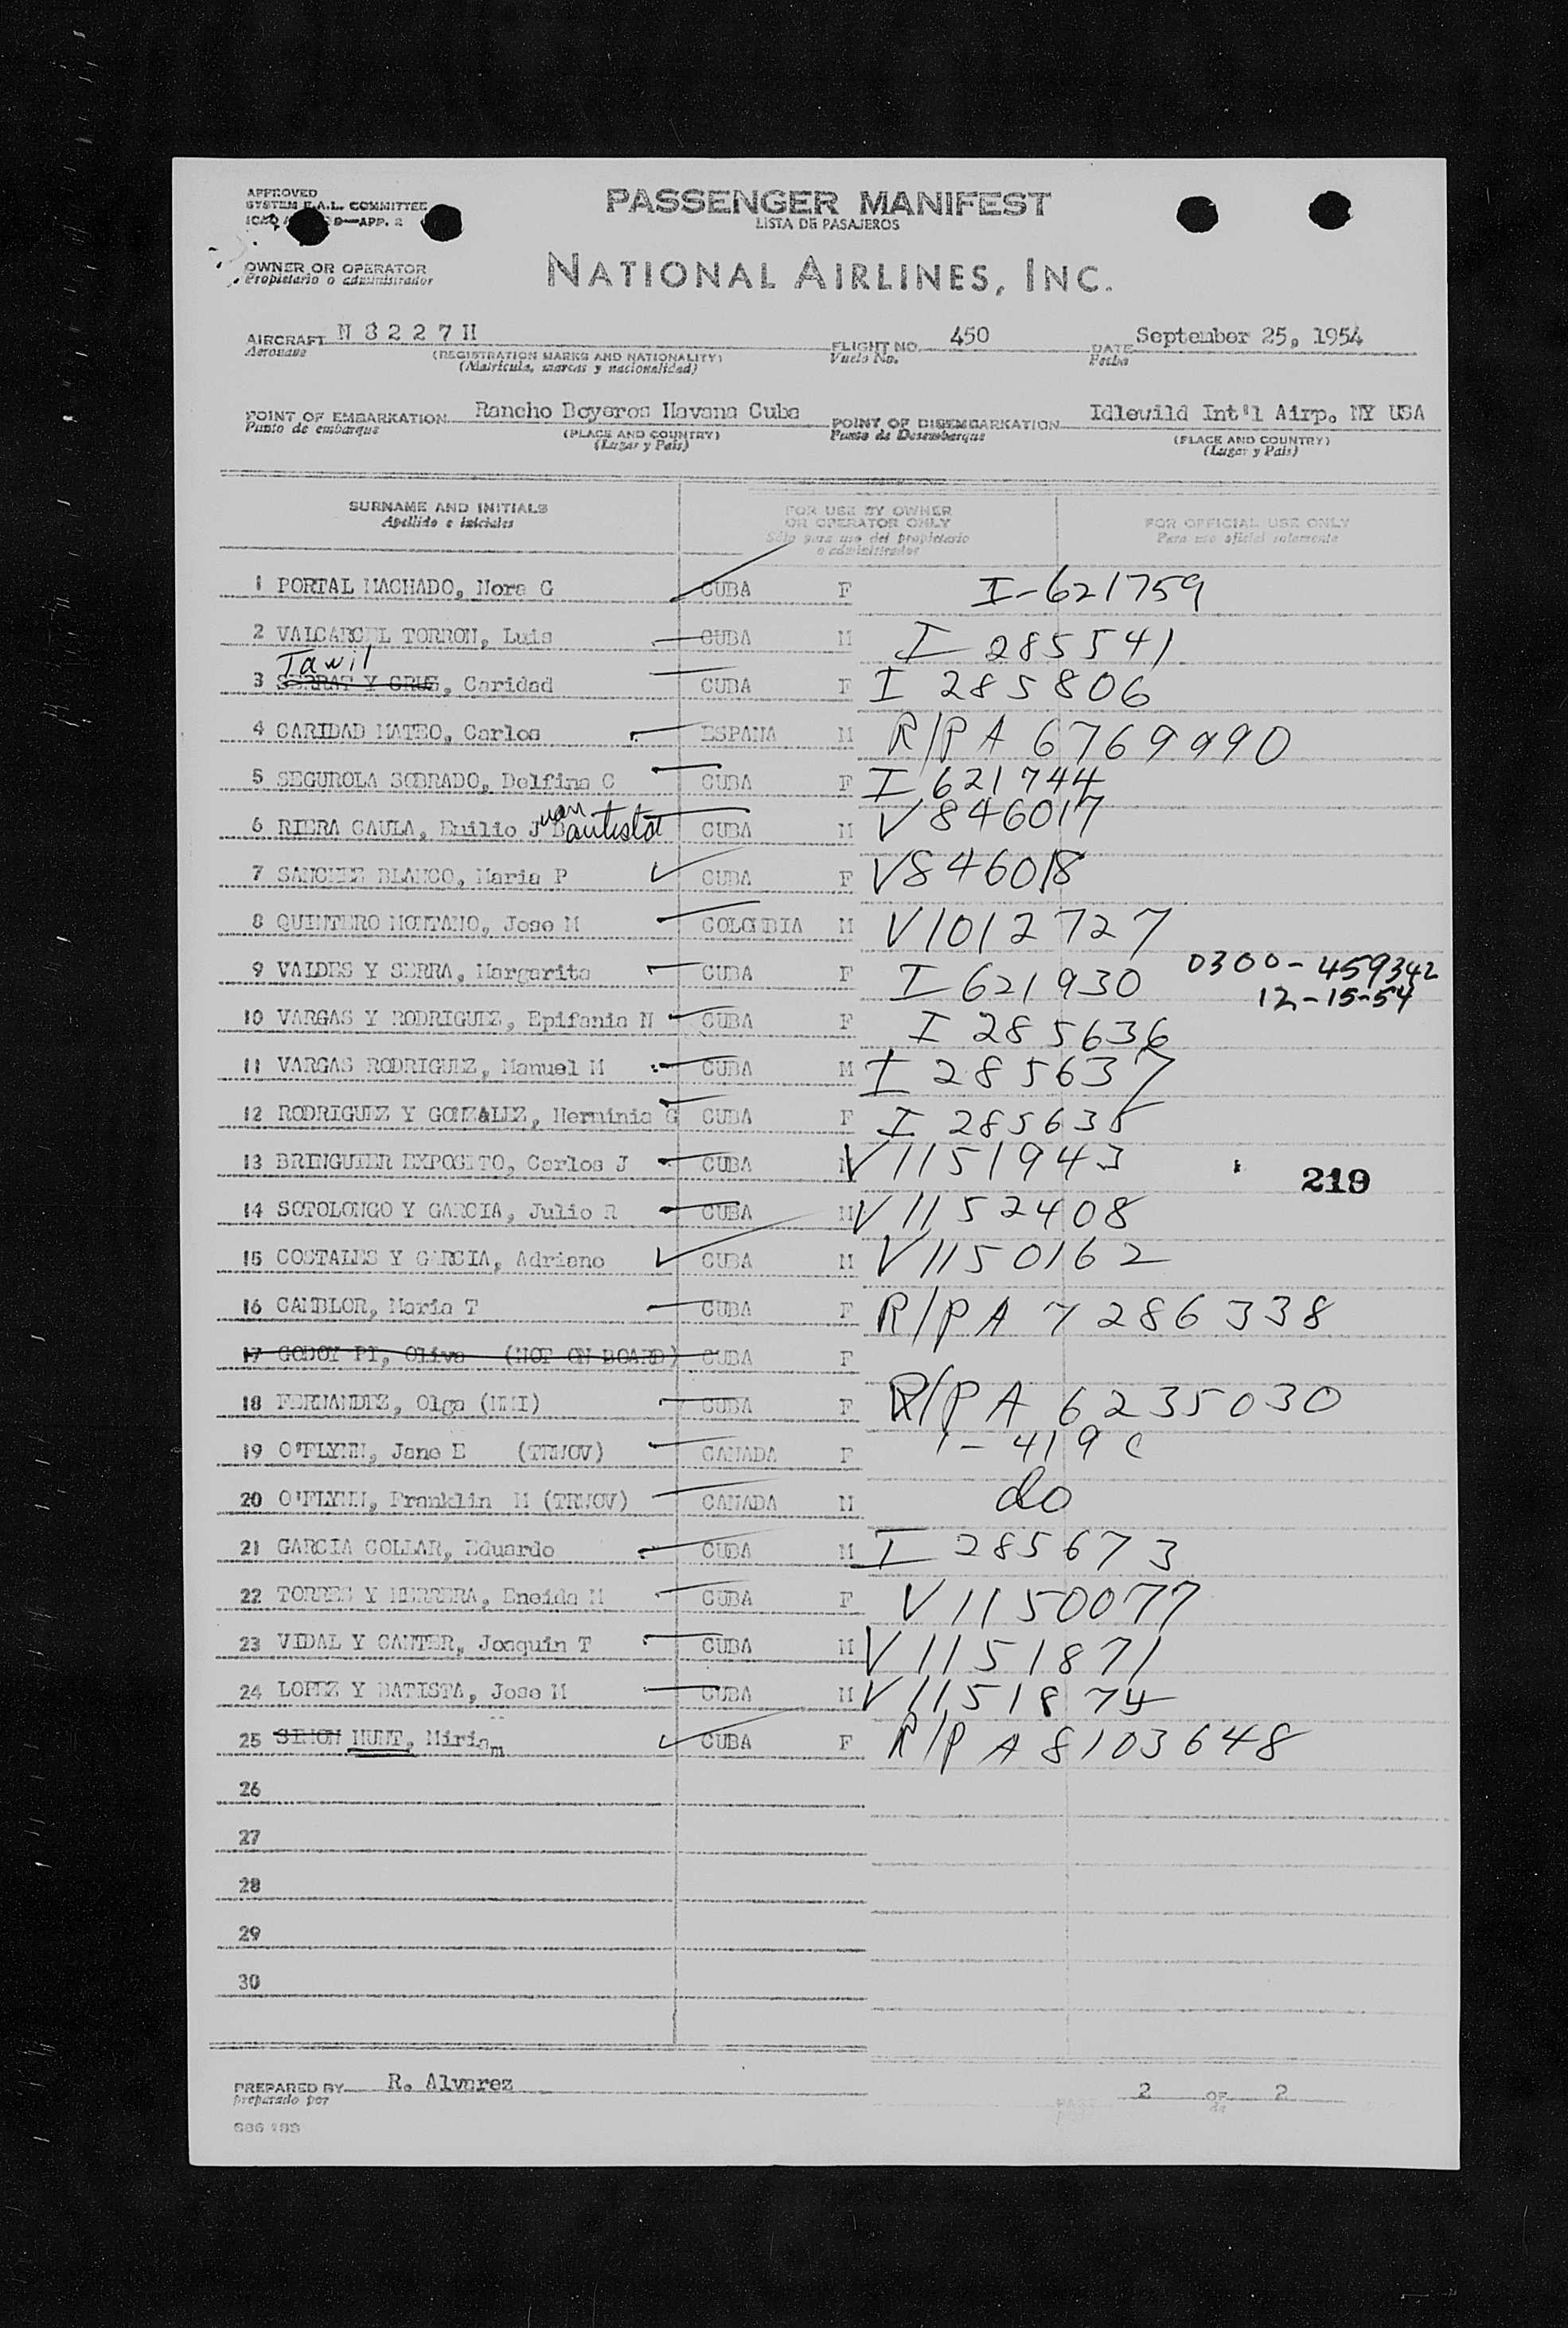 APPROVED
SYSTEM F.A.L. COMMITTEE
9—APP. 2
PASSENGER MANIFEST
LISTA DE PASAJEROS
OWNER OR OPERATOR
Propietario o administrador
NATIONAL AIRLINES, INC.
AIRCRAFT N 8 2 2 7 H FLIGHT NO. 450 DATE September 25, 1954
Aeronave (REGISTRATION MARKS AND NATIONALITY) Vuelo No. Fecha
(Matricula, marcas y nacionalidad)
POINT OF EMBARKATION Rancho Boyeros Havana Cuba POINT OF DISEMBARKATION Idlewild Int'l Airp. NY USA
Punto de embarque (PLACE AND COUNTRY) Punto de Desembarque (PLACE AND COUNTRY)
(Lugar y Pais) (Lugar y Pais)
SURNAME AND INITIALS FOR USE BY OWNER OR OPERATOR ONLY FOR OFFICIAL USE ONLY
Apellido e iniciales Sólo para uso del propietario o administrador Para uso oficial solamente
1 PORTAL MACHADO, Nora G CUBA F I-621759
2 VALCARCEL TORRON, Luis CUBA M I 285541
Tawil
3 SERRAT Y CRUZ, Caridad CUBA F I 285806
4 CARIDAD MATEO, Carlos ESPANA M R/P A 6769990
5 SEGUROLA SOBRADO, Delfina C CUBA F I 621744
6 RIERA CAULA, Emilio Juan Bautista CUBA M V 846017
7 SANCHEZ BLANCO, Maria P CUBA F V846018
8 QUINTERO MONTANO, Jose M COLOMBIA M V1012727
9 VALDES Y SERRA, Margarita CUBA F I 621930 0300-459342
12-15-54
10 VARGAS Y RODRIGUEZ, Epifania N CUBA F I 285636
11 VARGAS RODRIGUEZ, Manuel M CUBA M I 285637
12 RODRIGUEZ Y GONZALEZ, Herminia G CUBA F I 285638
13 BRINGUIER EXPOSITO, Carlos J CUBA M V 1151943
219
14 SOTOLONGO Y GARCIA, Julio R CUBA M V 1152408
15 COSTALES Y GARCIA, Adriano CUBA M V 1150162
16 CAMBLOR, Maria T CUBA F R/P A 7286338
17 GODOY PI, Oliva (NOT ON BOARD) CUBA F
18 FERNANDEZ, Olga (NMI) CUBA F R/P A 6235030
19 O'FLYNN, Jane E (TRWOV) CANADA F 1-419 C
20 O'FLYNN, Franklin M (TRWOV) CANADA M do
21 GARCIA COLLAR, Eduardo CUBA M I 285673
22 TORRES Y HERRERA, Eneida M CUBA F V 1150077
23 VIDAL Y CANTER, Joaquin T CUBA M V 1151871
24 LOPEZ Y BATISTA, Jose M CUBA M V 1151874
25 SIMON HUNT, Miriam CUBA F R/P A 8103648
26
27
28
29
30
PREPARED BY R. Alvarez PAGE 2 OF 2
preparado por de